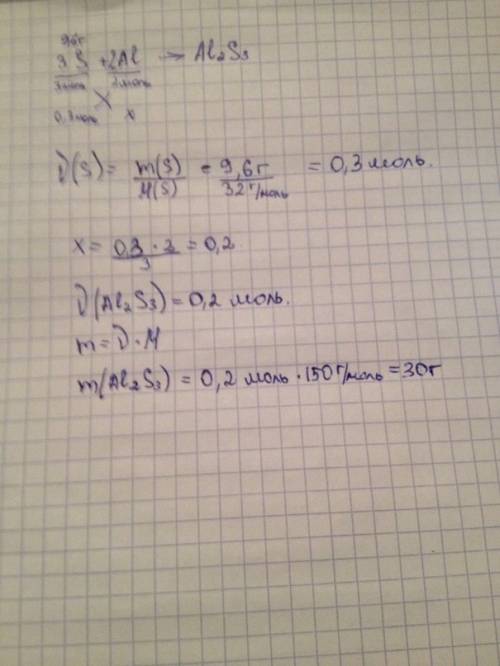 9,6г
3S + 2Al → Al₂S₃
3моль 2моль
0,3моль x
ν(S) = m(S)/M(S) = 9,6г/32г/моль = 0,3 моль.
x = 0,3 · 2/3 = 0,2
ν(Al₂S₃) = 0,2 моль.
m = ν · M
m(Al₂S₃) = 0,2 моль · 150г/моль = 30г